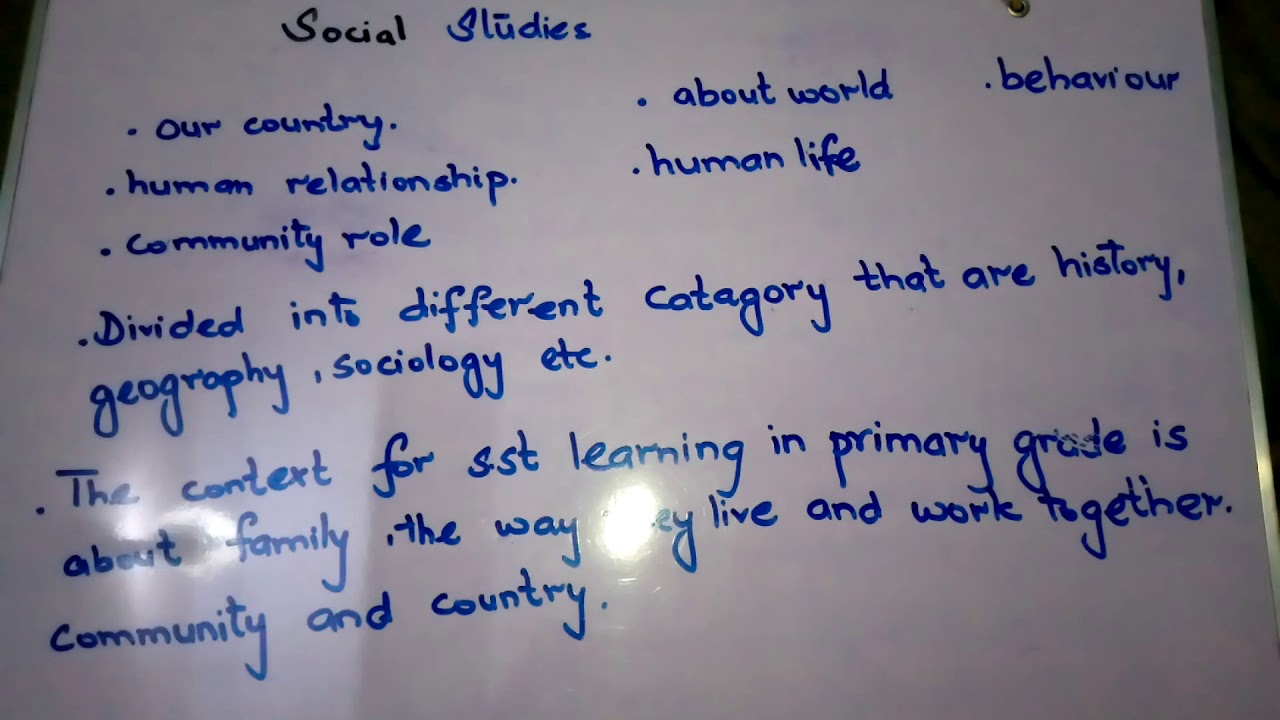 Social Studies
. our country. . about world . behaviour
. human relationship. . human life
. community role
. Divided into different catagory that are history,
geography, sociology etc.
. The context for s.st learning in primary grade is
about family, the way live and work together.
community and country.